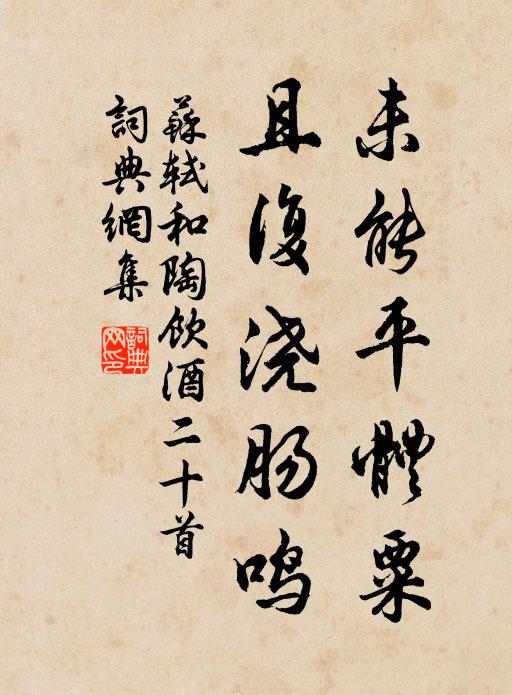 未能平體粟
且復浇肠鸣
蘇軾和陶飲酒二十首
詞典網集
詞典網印